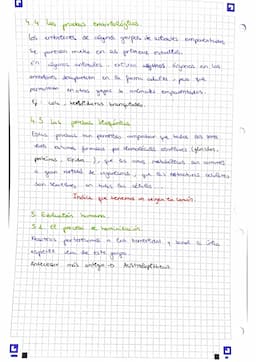 4.4 Las pruebas embriológicas
los embriones de algunos grupos de animales emparentados
se parecen mucho en las primeras estadios.
En algunos animales, existen algunos órganos en los
embriones desaparecen en la forma adulta, pero que
permanecen en otros grupos de animales emparentados.
Ej: cola, hendiduras branquiales.
4.5 Las pruebas bioquímicas
Estas pruebas nos permiten comprobar que todos los seres
vivos estamos formados por biomoléculas similares (glúcidos,
proteínas, lípidos...), que las rutas metabólicas son comunes
a gran variedad de organismos, que las estructuras celulares
son similares en todas las células...
Indica que tenemos un origen en común.
5. Evolución humana
5.1. El proceso de hominización.
Nosotros pertenecemos a los homínidos y somos la única
especie viva de este grupo.
Antecesor más antiguo → Australopithecus